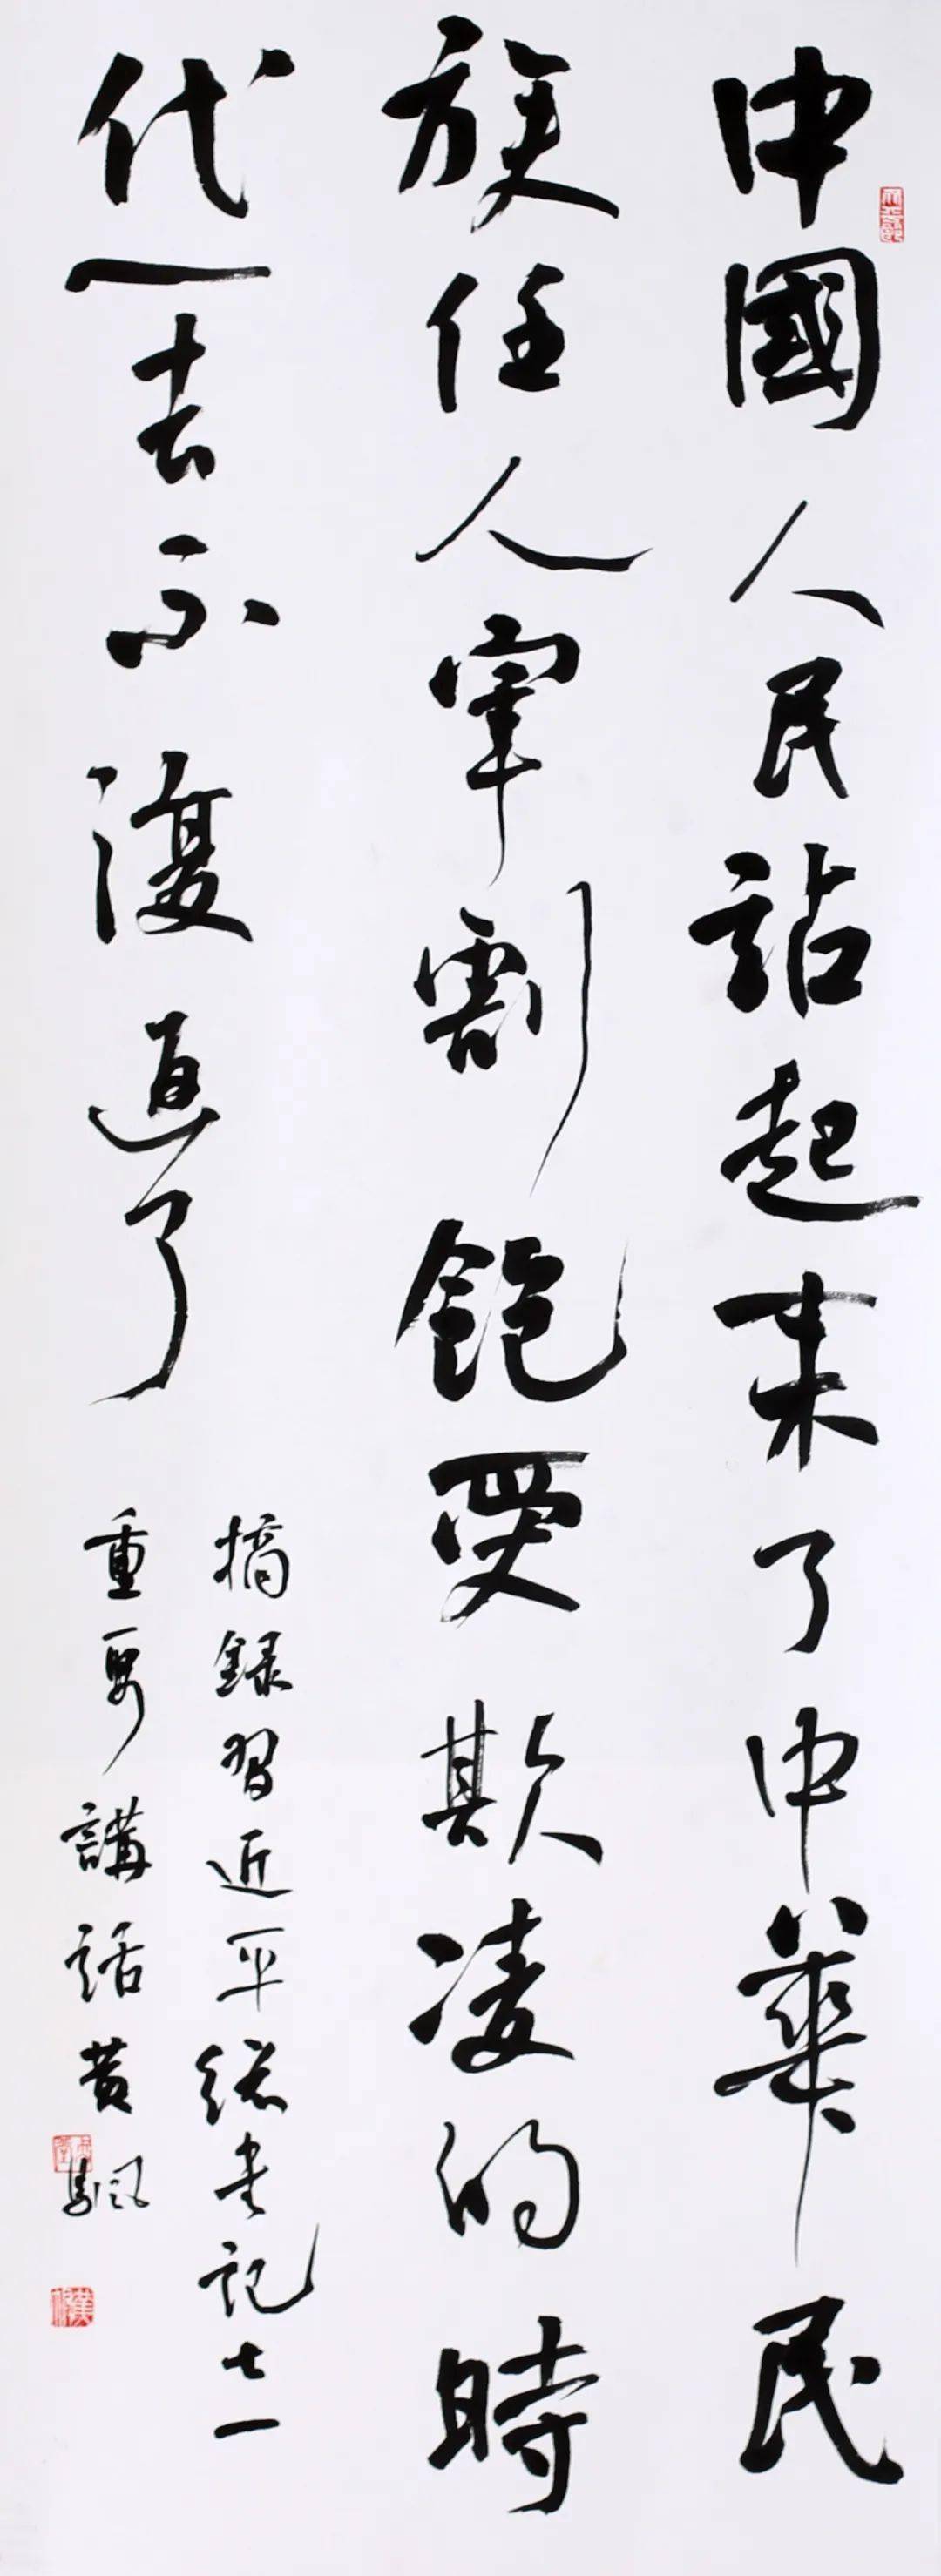 中國人民站起来了中華民
族任人宰割飽受欺凌的時
代一去不復返了
摘録習近平總書記七一
重要講話黄飈